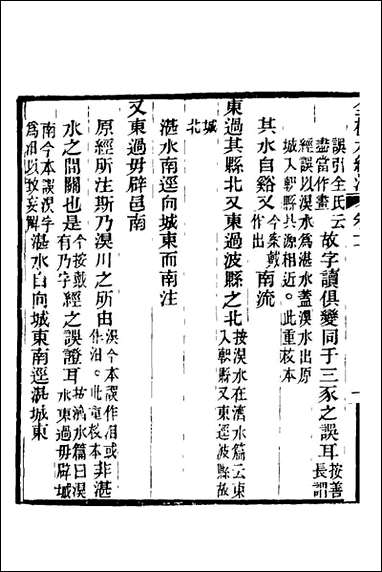 誤引全氏云盡當作畫故字讀俱變同于三豕之誤耳按善長謂
經誤以湨水為湛水蓋湨水出原城入軹縣共源相近。此重校本
其水自谿又今案戴作出南流
東過其縣北又東過波縣之北按湨水在濟水篇云東入軹縣又東逕波縣故
城北
湛水南逕向城東而南注
又東過毋辟邑南
原經所注斯乃湨川之所由湨今本誤作相或作洎。此重校本非湛
水之間關也是今按戴有乃字經之誤證耳按濟水篇曰湨水東過毋辟城
南今本誤湨字為相以致妄解湛水自向城東南逕湛城東